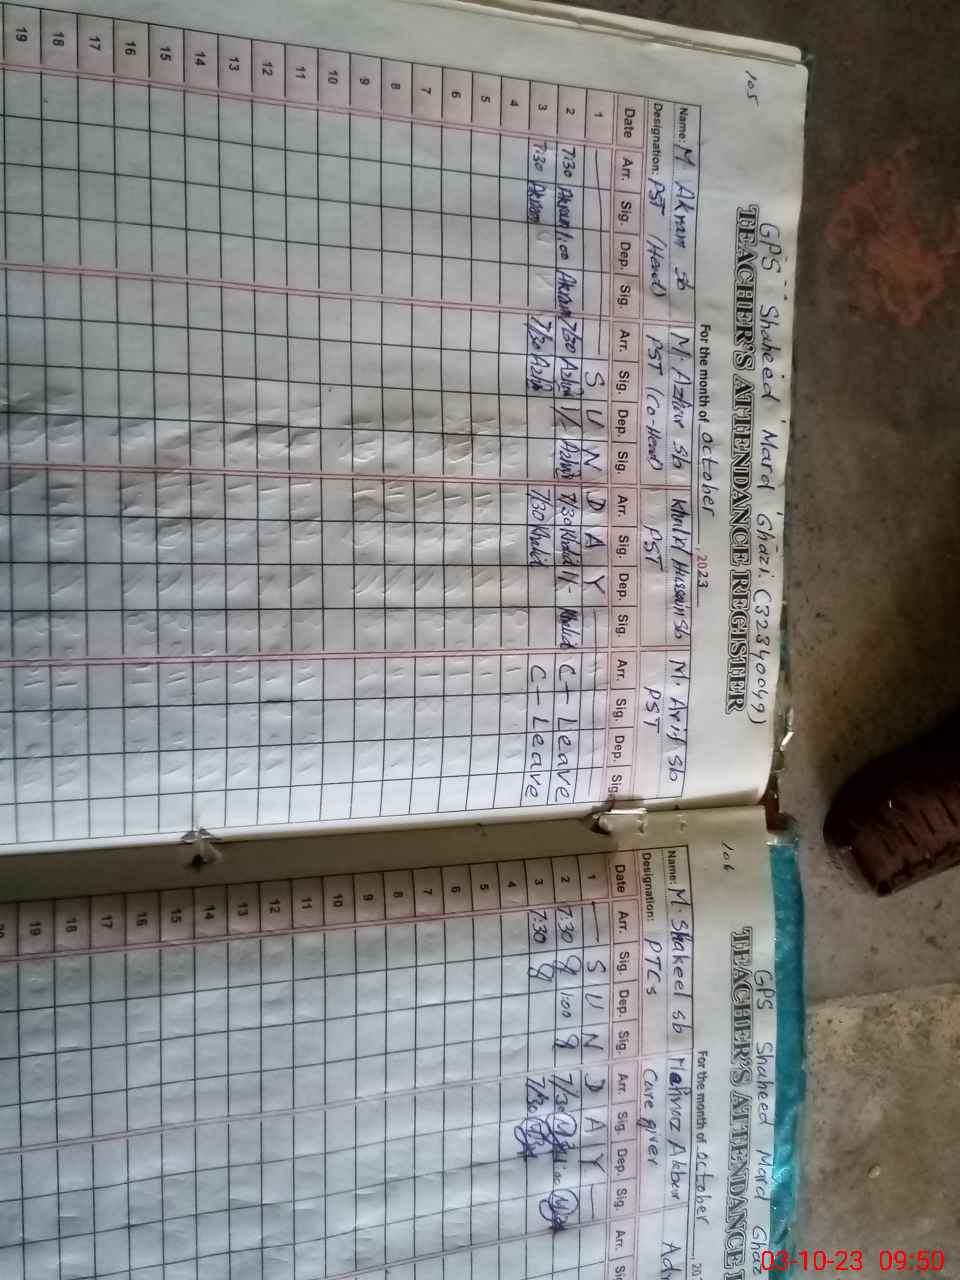 105
GPS Shaheed Mard Ghazi (32340049)
TEACHER'S ATTENDANCE REGISTER
For the month of October, 2023
Name: M Akram sb M. Azhar sb Khalid Hussain sb M. Arif sb
Designation: PST (Head) PST (Co-Head) PST PST
Date Arr. Sig. Dep. Sig. Arr. Sig. Dep. Sig. Arr. Sig. Dep. Sig. Arr. Sig. Dep. Sig.
1 S U N D A Y
2 7:30 Akram 1:00 Akram 7/30 Azhar 1/- Azhar 7/30 Khalid 1/- Khalid C - Leave
3 7:30 Akram 7/30 Azhar 7/30 Khalid C - Leave
4
5
6
7
8
9
10
11
12
13
14
15
16
17
18
19
106
GPS Shaheed Mard Ghaz
TEACHER'S ATTENDANCE
For the month of October, 20
Name: M. Shakeel sb Akbar
Designation: PTCs Care giver
Date Arr. Sig. Dep. Sig. Arr. Sig. Dep. Sig. Arr.
1 S U N D A Y
2 7:30 1:00 7/30
3 7:30 7/30
4
5
6
7
8
9
10
11
12
13
14
15
16
17
18
19
03-10-23 09:50